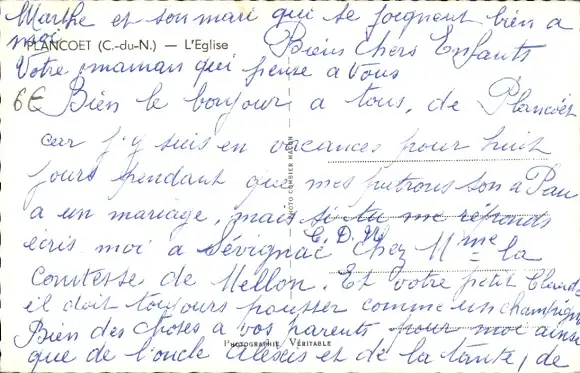 Marthe et son mari qui se joignent bien a
moi
PLANCOET (C.-du-N.) — L'Eglise
Biens chers Enfants
Votre maman qui pense a vous
6€ Bien le bonjour a tous, de Plancoët
car j'y suis en vacances pour huit
jours pendant que mes patrons son a Pau
a un mariage, mais si tu me réponds
écris moi a Sévignac C. D. N. chez Mme la
Comtesse de Mellon. Et votre petit Claude
il doit toujours pousser comme un champignon
Bien des choses a vos parents pour moi ainsi
que de l'oncle Alexis et de la tante, de
PHOTO COMBIER MACON
PHOTOGRAPHIE VÉRITABLE